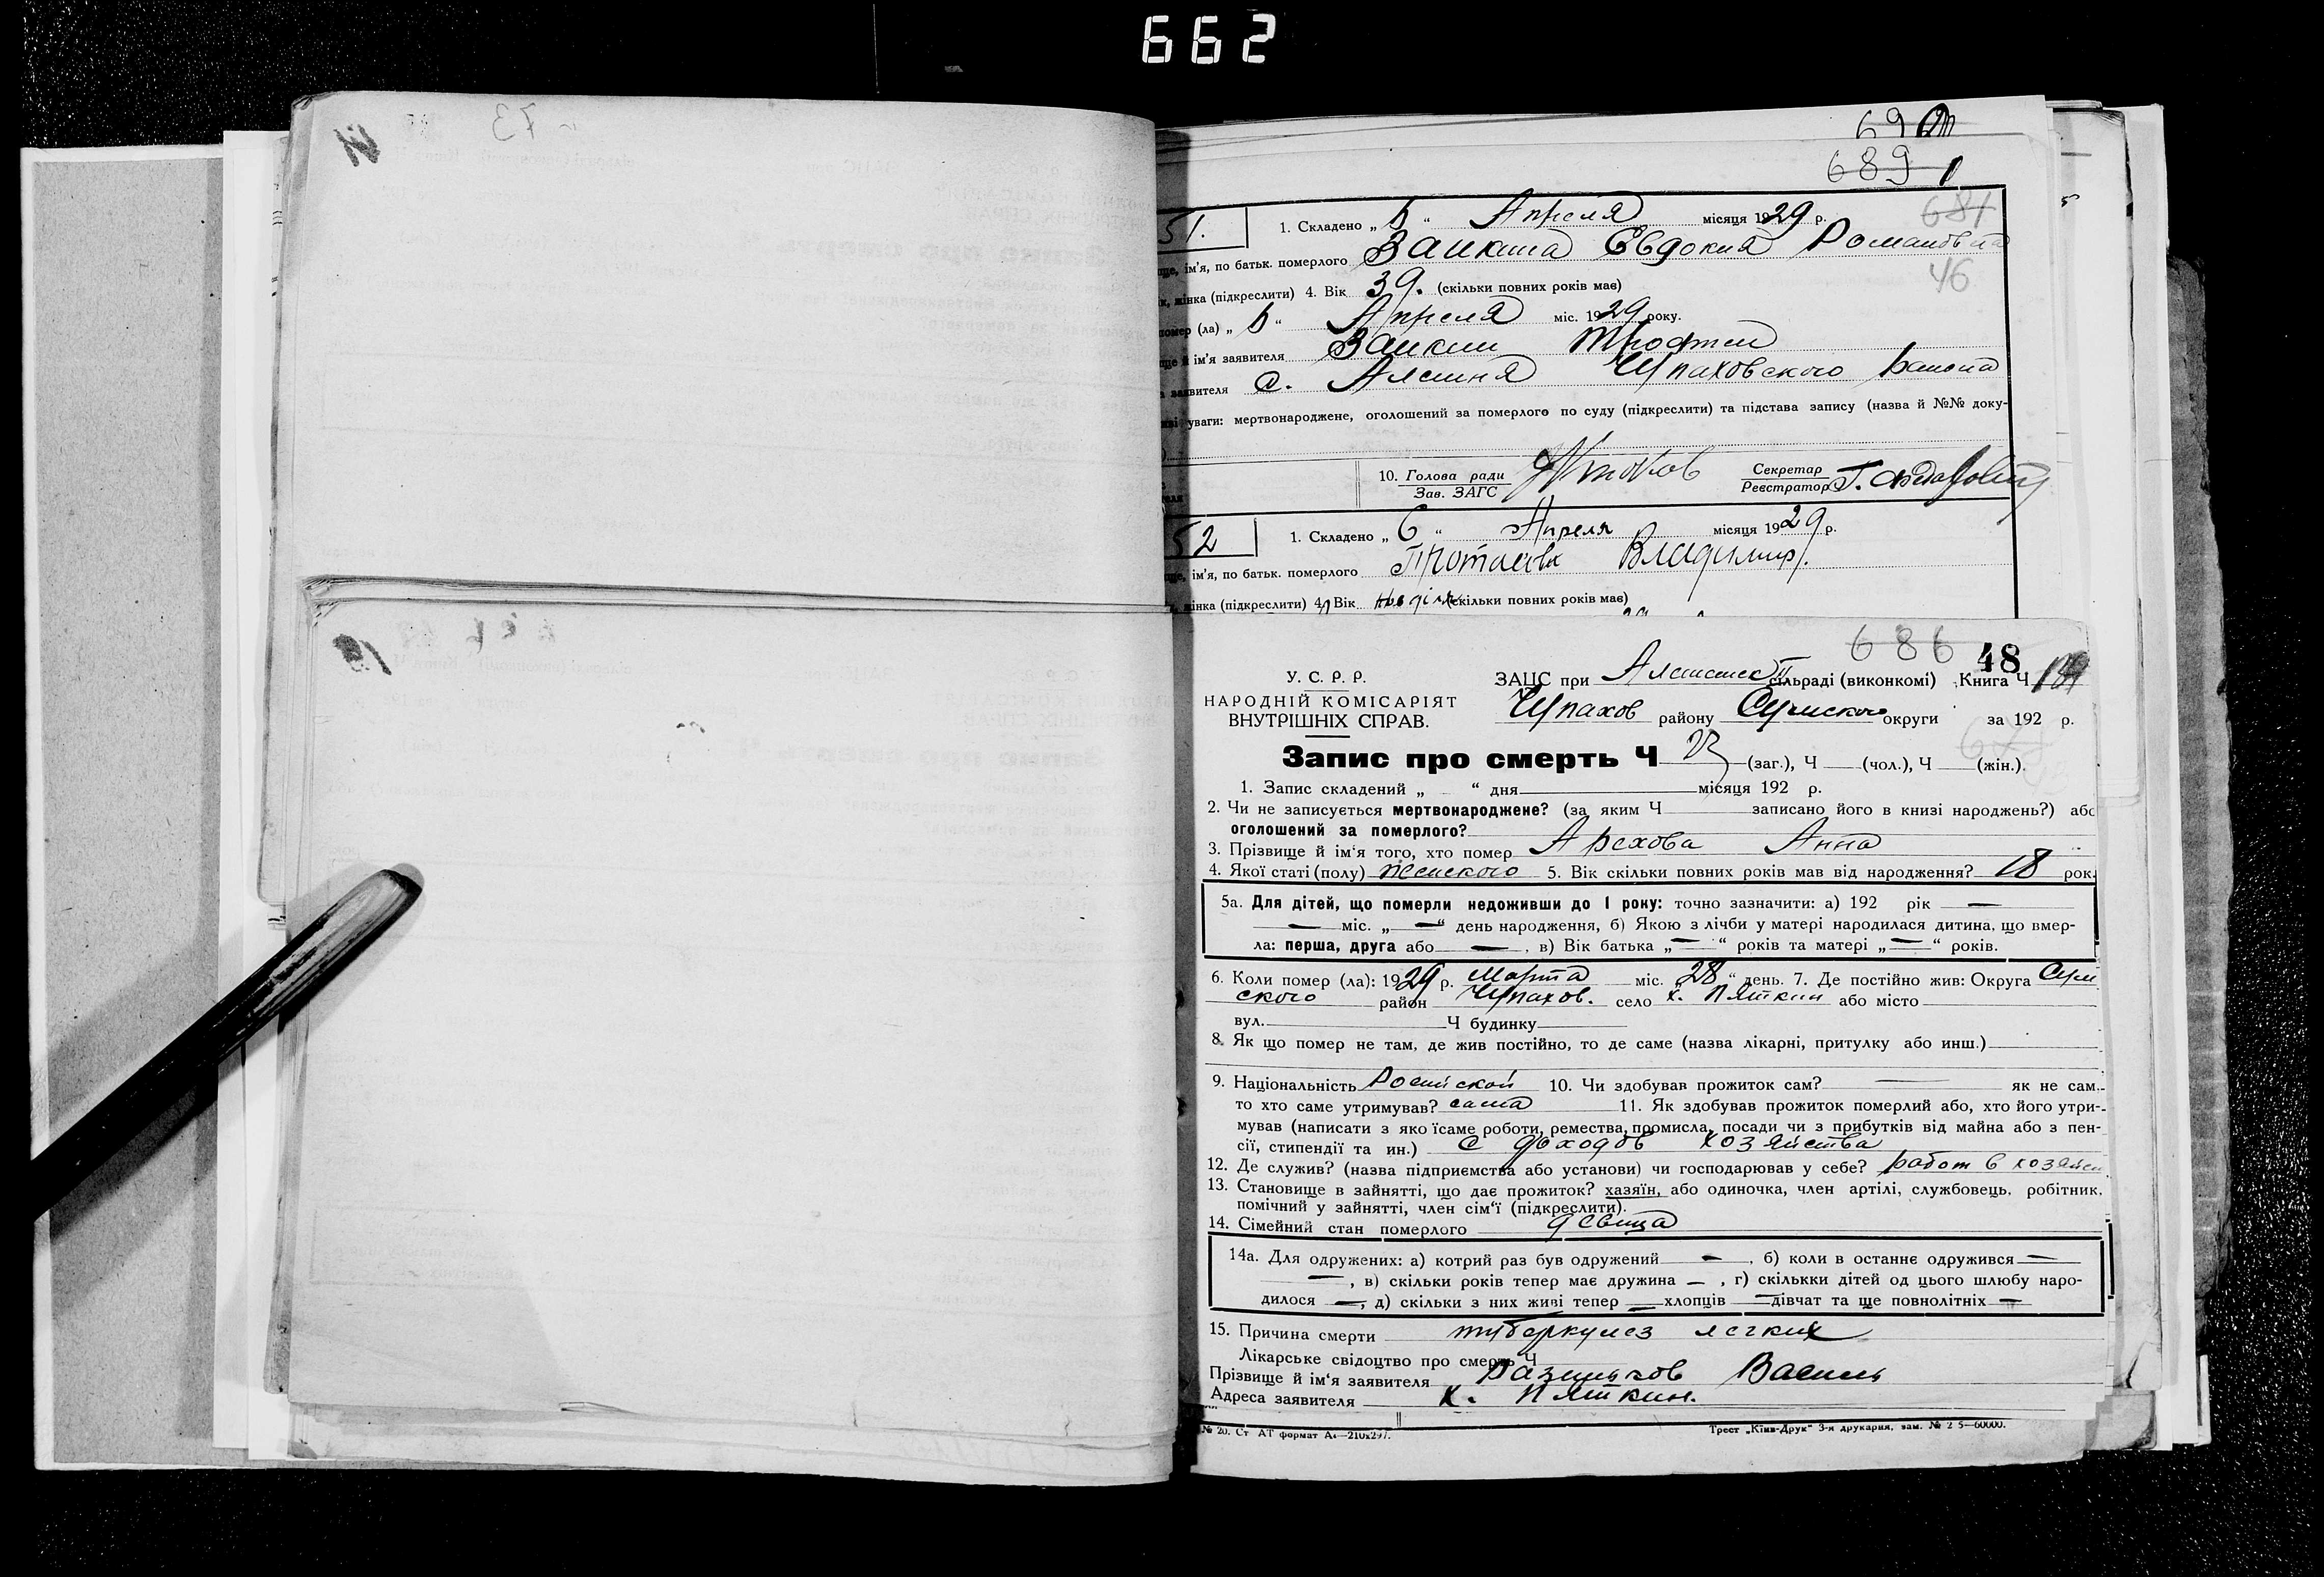 662
69
689
681
51.
1. Складено „ 6 “ Апреля місяця 1929 р.
ім'я, по батьк. померлого Заикина Евдокия Романовна
46
жінка (підкреслити) 4. Вік 39. (скільки повних років має)
помер (ла) „ 6 “ Апреля міс. 1929 року.
ім'я заявителя Заикин
заявителя с. Алешня Чупаховского района
уваги: мертвонароджене, оголошений за померлого по суду (підкреслити) та підстава запису (назва й №№ доку-
10. Голова ради Секретар
Зав. ЗАГС Реєстратор
52
1. Складено „ 6 “ Апреля місяця 1929 р.
ім'я, по батьк. померлого Владимир
жінка (підкреслити) 4. Вік (скільки повних років має)
686 48
У. С. Р. Р.
ЗАЦС при сільраді (виконкомі) Книга Ч
НАРОДНІЙ КОМІСАРІЯТ
ВНУТРІШНІХ СПРАВ.
Чупахов району Сумского округи за 192 р.
Запис про смерть Ч 23 (заг.), Ч (чол.), Ч (жін.).
1. Запис складений „ “ дня місяця 192 р.
2. Чи не записується мертвонароджене? (за яким Ч записано його в книзі народжень?) або
оголошений за померлого?
3. Прізвище й ім‘я того, хто помер Арехова Анна
4. Якої статі (полу) женского 5. Вік скільки повних років мав від народження? 18 рок.
5а. Для дітей, що померли недоживши до 1 року: точно зазначити: а) 192 рік —
— міс. „ — “ день народження, б) Якою з лічби у матері народилася дитина, що вмер-
ла: перша, друга або — , в) Вік батька „ — “ років та матері „ — “ років.
6. Коли помер (ла): 1929 р. Марта міс. 28 “ день. 7. Де постійно жив: Округа Сум
ского район Чупахов. село х. Пяткин або місто
вул. Ч будинку
8. Як що помер не там, де жив постійно, то де саме (назва лікарні, притулку або инш.)
9. Національність 10. Чи здобував прожиток сам? — як не сам,-
то хто саме утримував? сама 11. Як здобував прожиток померлий або, хто його утри-
мував (написати з яко їсаме роботи, ремества, промисла, посади чи з прибутків від майна або з пен-
сії, стипендії та ин.) С доходов хозяйства
12. Де служив? (назва підприємства або установи) чи господарював у себе? работ в хозяйс
13. Становище в зайнятті, що дає прожиток? хазяїн, або одиночка, член артілі, службовець, робітник,
помічний у зайнятті, член сім‘ї (підкреслити).
14. Сімейний стан померлого девица
14а. Для одружених: а) котрий раз був одружений — , б) коли в останнє одружився —
— , в) скільки років тепер має дружина — , г) скількки дітей од цього шлюбу наро-
дилося — , д) скільки з них живі тепер — хлопців — дівчат та ще повнолітніх —
15. Причина смерти туберкулез легких
Лікарське свідоцтво про смерть Ч
Прізвище й ім‘я заявителя Разиньков Василь
Адреса заявителя х. Пяткин.
№ 20. Ст АТ формат А4—210х297.
Трест „Київ-Друк“ 3-я друкарня, зам. № 2 5—60000.